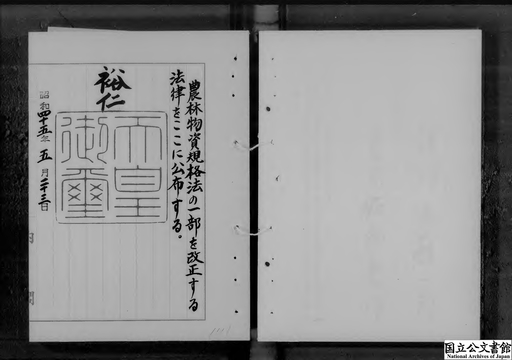 農林物資規格法の一部を改正する
法律をここに公布する。
裕仁
天皇
御璽
昭和四十五年五月二十三日
内閣
国立公文書館
National Archives of Japan